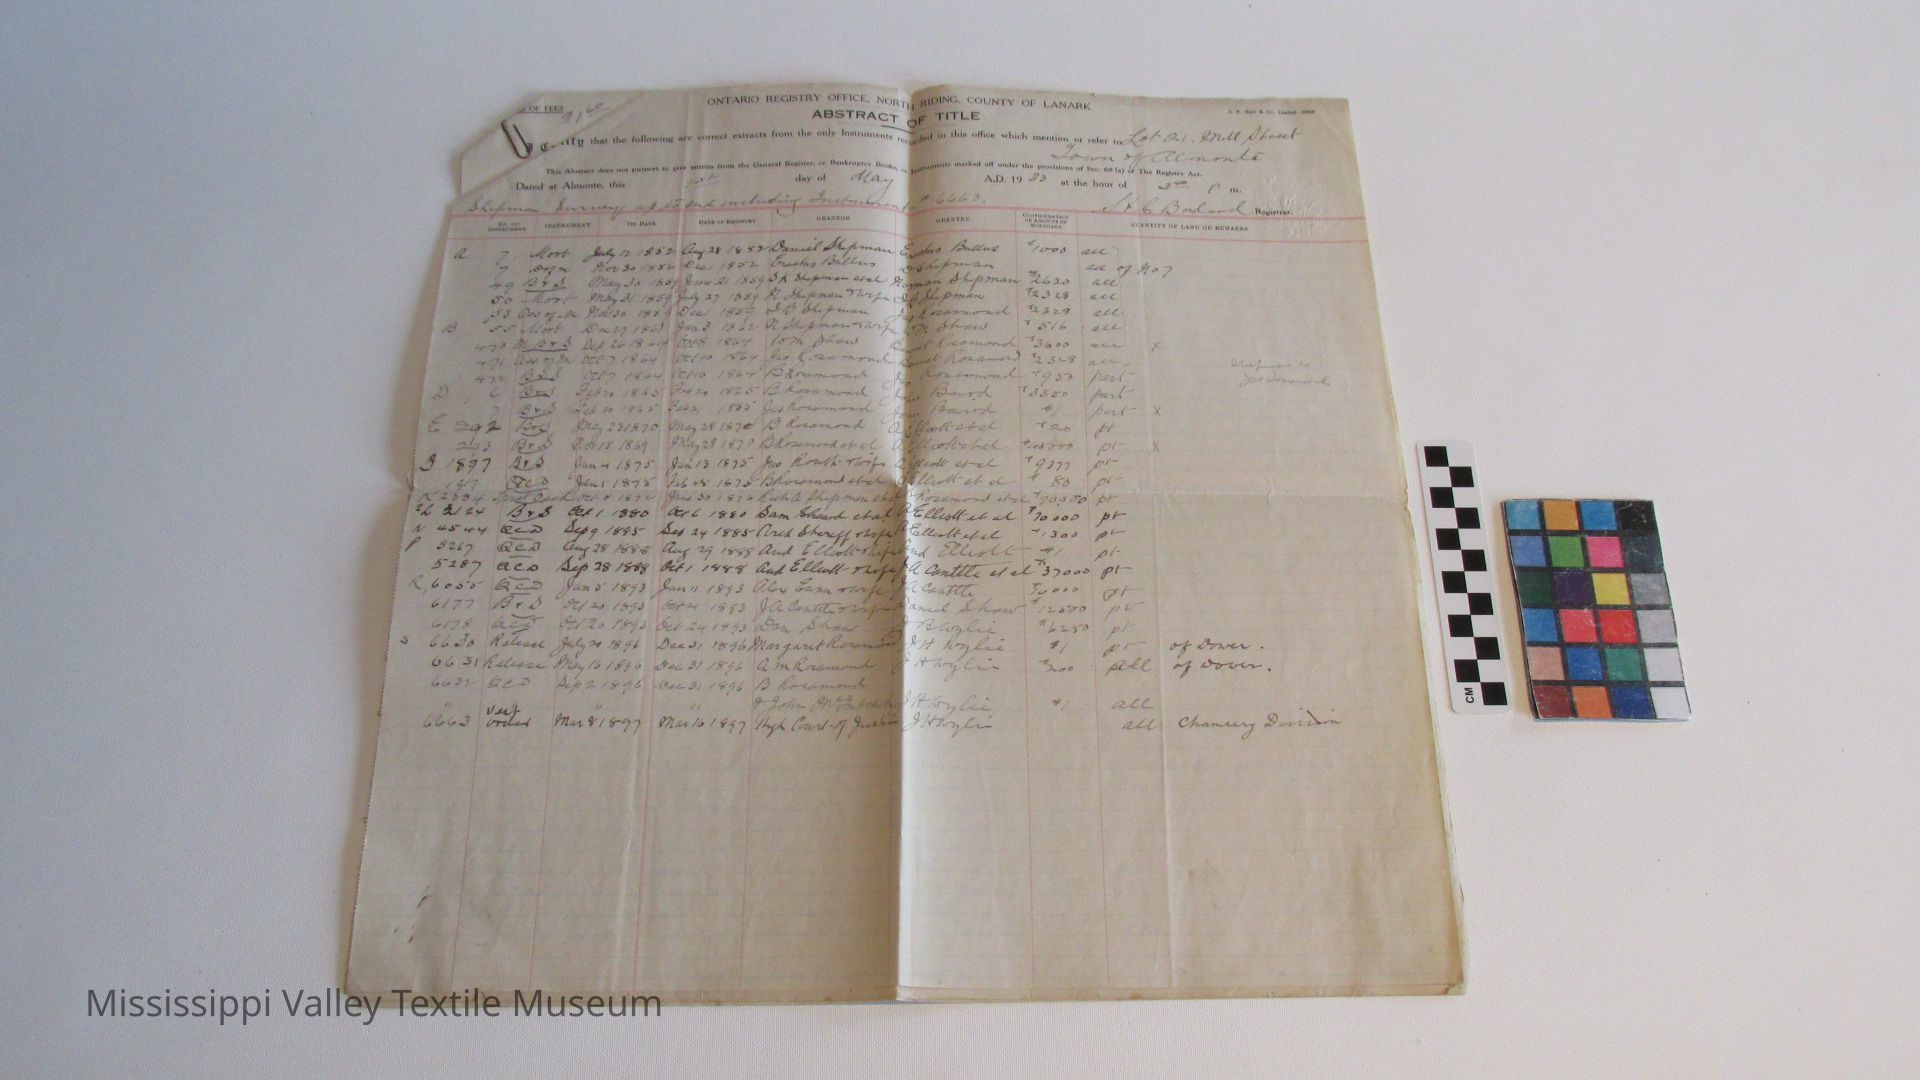 OF FEES
ONTARIO REGISTRY OFFICE, NORTH RIDING, COUNTY OF LANARK
ABSTRACT OF TITLE
that the following are correct extracts from the only Instruments recorded in this office which mention or refer to Lot 21. Mill Street
Town of Almonte
This Abstract does not purport to give entries from the General Register, or Bankruptcy Books, or Instruments marked off under the provisions of Sec. 68 (a) of The Registry Act.
Dated at Almonte, this 1st day of May A.D. 19 33 at the hour of P m.
Shipman Survey up to and including Instrument # 6663. Registrar.
NO. OF INSTRUMENT INSTRUMENT ITS DATE DATE OF REGISTRY GRANTOR GRANTEE CONSIDERATION OR AMOUNT OF MORTGAGE QUANTITY OF LAND OR REMARKS
A 7 Mort July 12 1852 Aug 28 1852 Daniel Shipman Bullus $1000 all
7 Nov 30 1852 Dec 1 1852 Bullus D Shipman all of No 7
49 B&S May 30 1859 June 21 1859 Shipman et al Norman Shipman $2620 all
50 Mort May 31 1859 July 27 1859 N Shipman & wife Shipman $2328 all
53 As of M Nov 30 1859 Dec 1 1859 Shipman Jas Rosamond $2328 all
B 55 Mort Dec 27 1861 Jan 3 1862 N Shipman & wife Wm Shaw $516 all
470 B&S Sep 26 1864 Oct 8 1864 Wm Shaw Bennet Rosamond $3600 all x
471 As of M Oct 7 1864 Oct 10 1864 Jas Rosamond Bennet Rosamond $2328 all
472 B&S Oct 7 1864 Oct 10 1864 B Rosamond Jas Rosamond $950 part
D 6 B&S Feb 20 1865 Feb 20 1865 B Rosamond John Baird $3550 part
7 B&S Feb 20 1865 Feb 21 1865 Jas Rosamond John Baird $1 part x
E 292 B&S May 23 1870 May 28 1870 B Rosamond A Elliott et al $20 pt
293 B&S Nov 18 1869 May 28 1870 B Rosamond et al A Elliott et al pt x
1897 B&S Jan 4 1875 Jan 13 1875 Jno Routh & wife A Elliott et al $9377 pt
QCD Jan 1 1875 Feb 28 1875 B Rosamond et al Elliott et al $80 pt
K 2334 Trust Deed Oct 8 1872 June 30 1876 Shipman et al Rosamond et al pt
L 3124 B&S Oct 1 1880 Oct 6 1880 Sam Sheard et al A Elliott et al $70000 pt
N 4544 QCD Sep 9 1885 Sep 24 1885 Arch Sheriff & wife A Elliott et al $1300 pt
P 5267 QCD Aug 28 1888 Aug 29 1888 And Elliott & wife And Elliott $1 pt
5287 QCD Sep 28 1888 Oct 1 1888 And Elliott & wife J A Cantlie et al $37000 pt
R 6055 QCD Jan 5 1893 Jan 11 1893 Alex & wife J A Cantlie pt
6177 B&S Oct 20 1893 Oct 24 1893 J A Cantlie & wife Daniel Shaw $12500 pt
6178 QCD Oct 20 1893 Oct 24 1893 Dan Shaw J B Wylie $6250 pt
S 6630 Release July 20 1896 Dec 31 1896 Margaret Rosamond J H Wylie $1 pt of Dower.
6631 Release May 16 1896 Dec 31 1896 A M Rosamond J H Wylie $200 all of Dower.
6632 QCD Sep 2 1896 Dec 31 1896 B Rosamond
" " " & John McIntosh J H Wylie $1 all
6663 Vest order Mar 8 1897 Mar 16 1897 High Court of Justice J H Wylie all Chancery Division
CM
Mississippi Valley Textile Museum